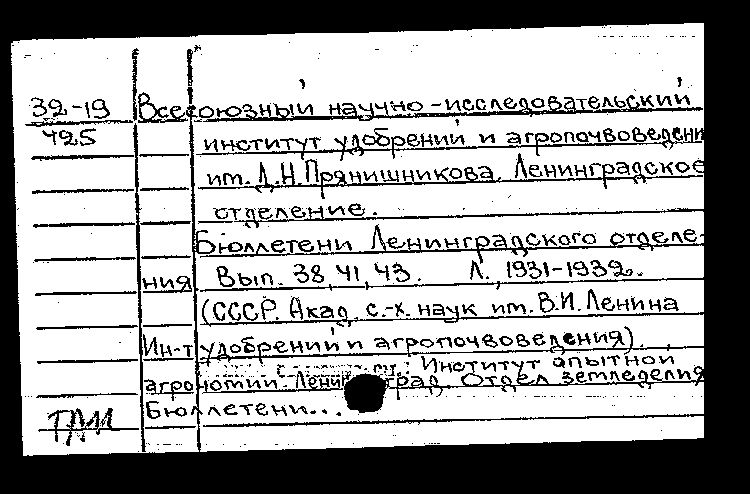 32-19 Всесоюзный научно-исследовательский
425 институт удобрений и агропочвоведени
им. Д.Н.Прянишникова. Ленинградское
отделение.
Бюллетени Ленинградского отделе-
ния. Вып. 38, 41, 43. Л., 1931-1932.
(СССР. Акад. с.-х. наук им. В.И. Ленина
Ин-т удобрений и агропочвоведения).
Институт опытной
агрономии. Ленинград. Отдел земледелия
Бюллетени...